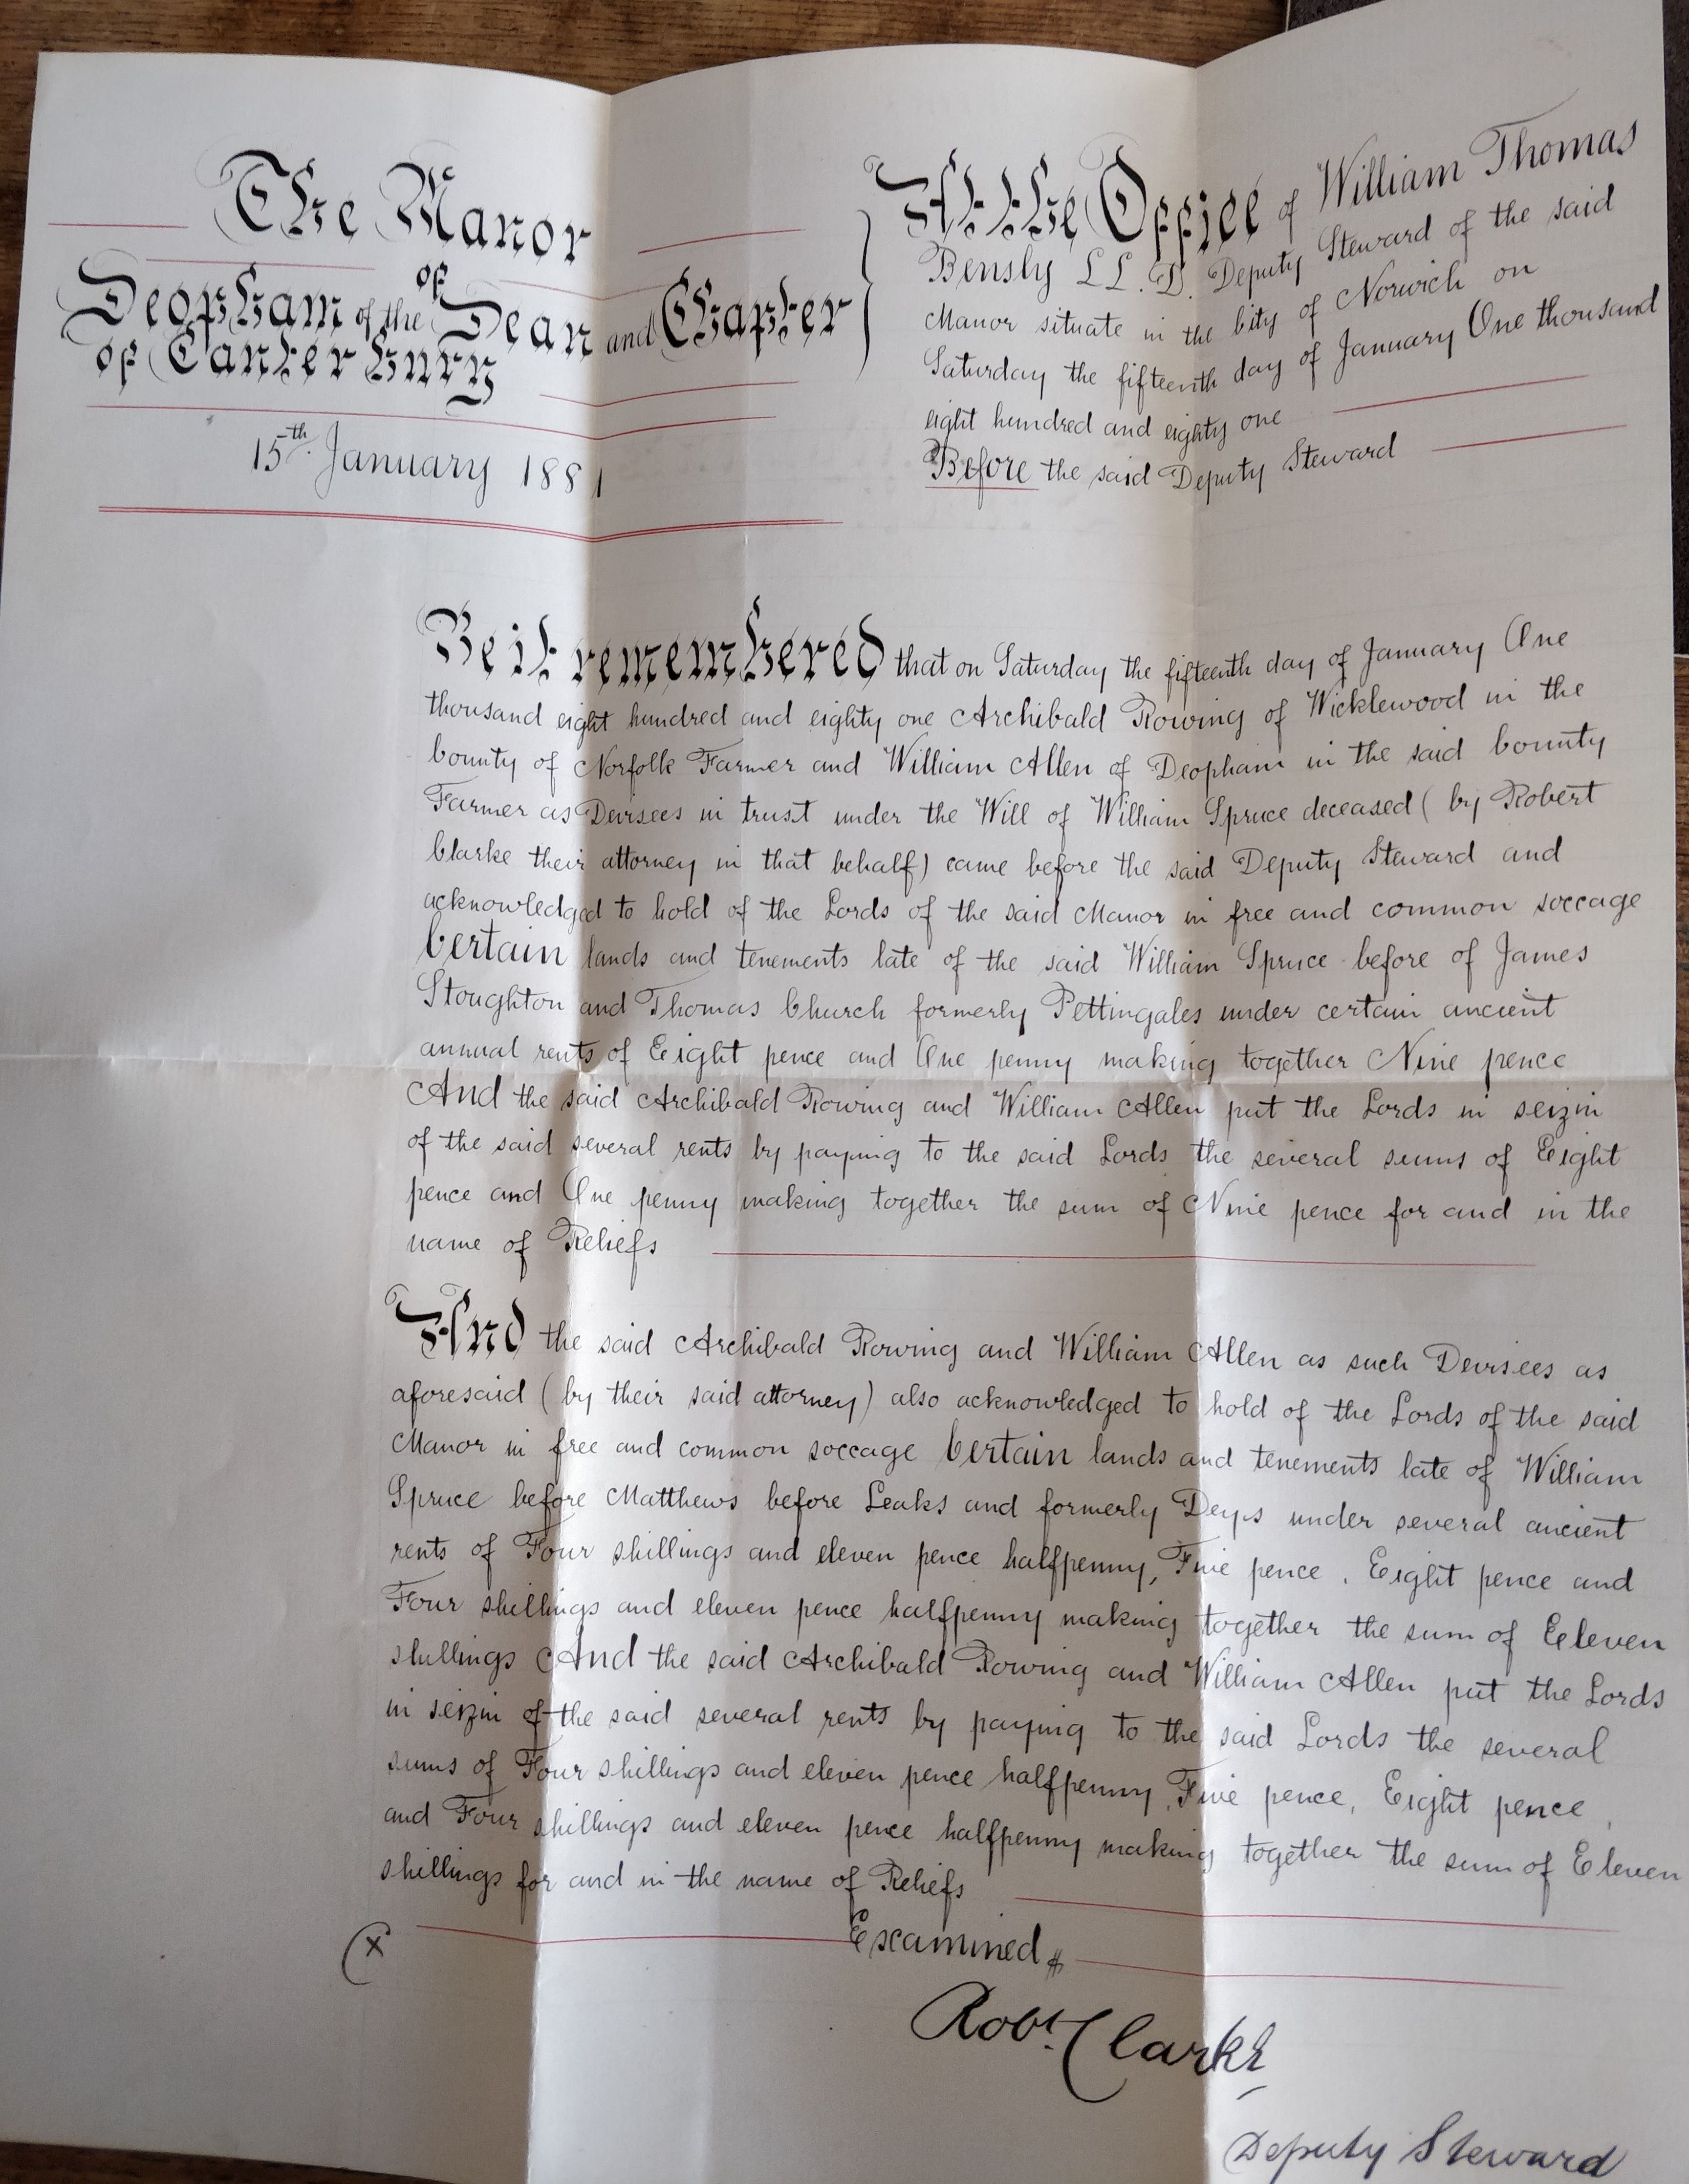 The Manor
of
Deopham of the Dean and Chapter
of Canterbury
15th. January 1881
At the Office of William Thomas
Bensly LL. D. Deputy Steward of the said
Manor situate in the City of Norwich on
Saturday the fifteenth day of January One thousand
eight hundred and eighty one
Before the said Deputy Steward
Be it remembered that on Saturday the fifteenth day of January One
thousand eight hundred and eighty one Archibald Rowing of Wicklewood in the
County of Norfolk Farmer and William Allen of Deopham in the said County
Farmer as Devisees in trust under the Will of William Spruce deceased (by Robert
Clarke their attorney in that behalf) came before the said Deputy Steward and
acknowledged to hold of the Lords of the said Manor in free and common soccage
Certain lands and tenements late of the said William Spruce before of James
Stoughton and Thomas Church formerly Pettingales under certain ancient
annual rents of Eight pence and One penny making together Nine pence
And the said Archibald Rowing and William Allen put the Lords in seizin
of the said several rents by paying to the said Lords the several sums of Eight
pence and One penny making together the sum of Nine pence for and in the
name of Reliefs
And the said Archibald Rowing and William Allen as such Devisees as
aforesaid (by their said attorney) also acknowledged to hold of the Lords of the said
Manor in free and common soccage Certain lands and tenements late of William
Spruce before Matthews before Leaks and formerly Deyes under several ancient
rents of Four shillings and eleven pence halfpenny, Five pence, Eight pence and
Four shillings and eleven pence halfpenny making together the sum of Eleven
shillings And the said Archibald Rowing and William Allen put the Lords
in seizin of the said several rents by paying to the said Lords the several
sums of Four shillings and eleven pence halfpenny, Five pence, Eight pence,
and Four shillings and eleven pence halfpenny making together the sum of Eleven
shillings for and in the name of Reliefs
(x
Examined
Robt. Clarke
Deputy Steward